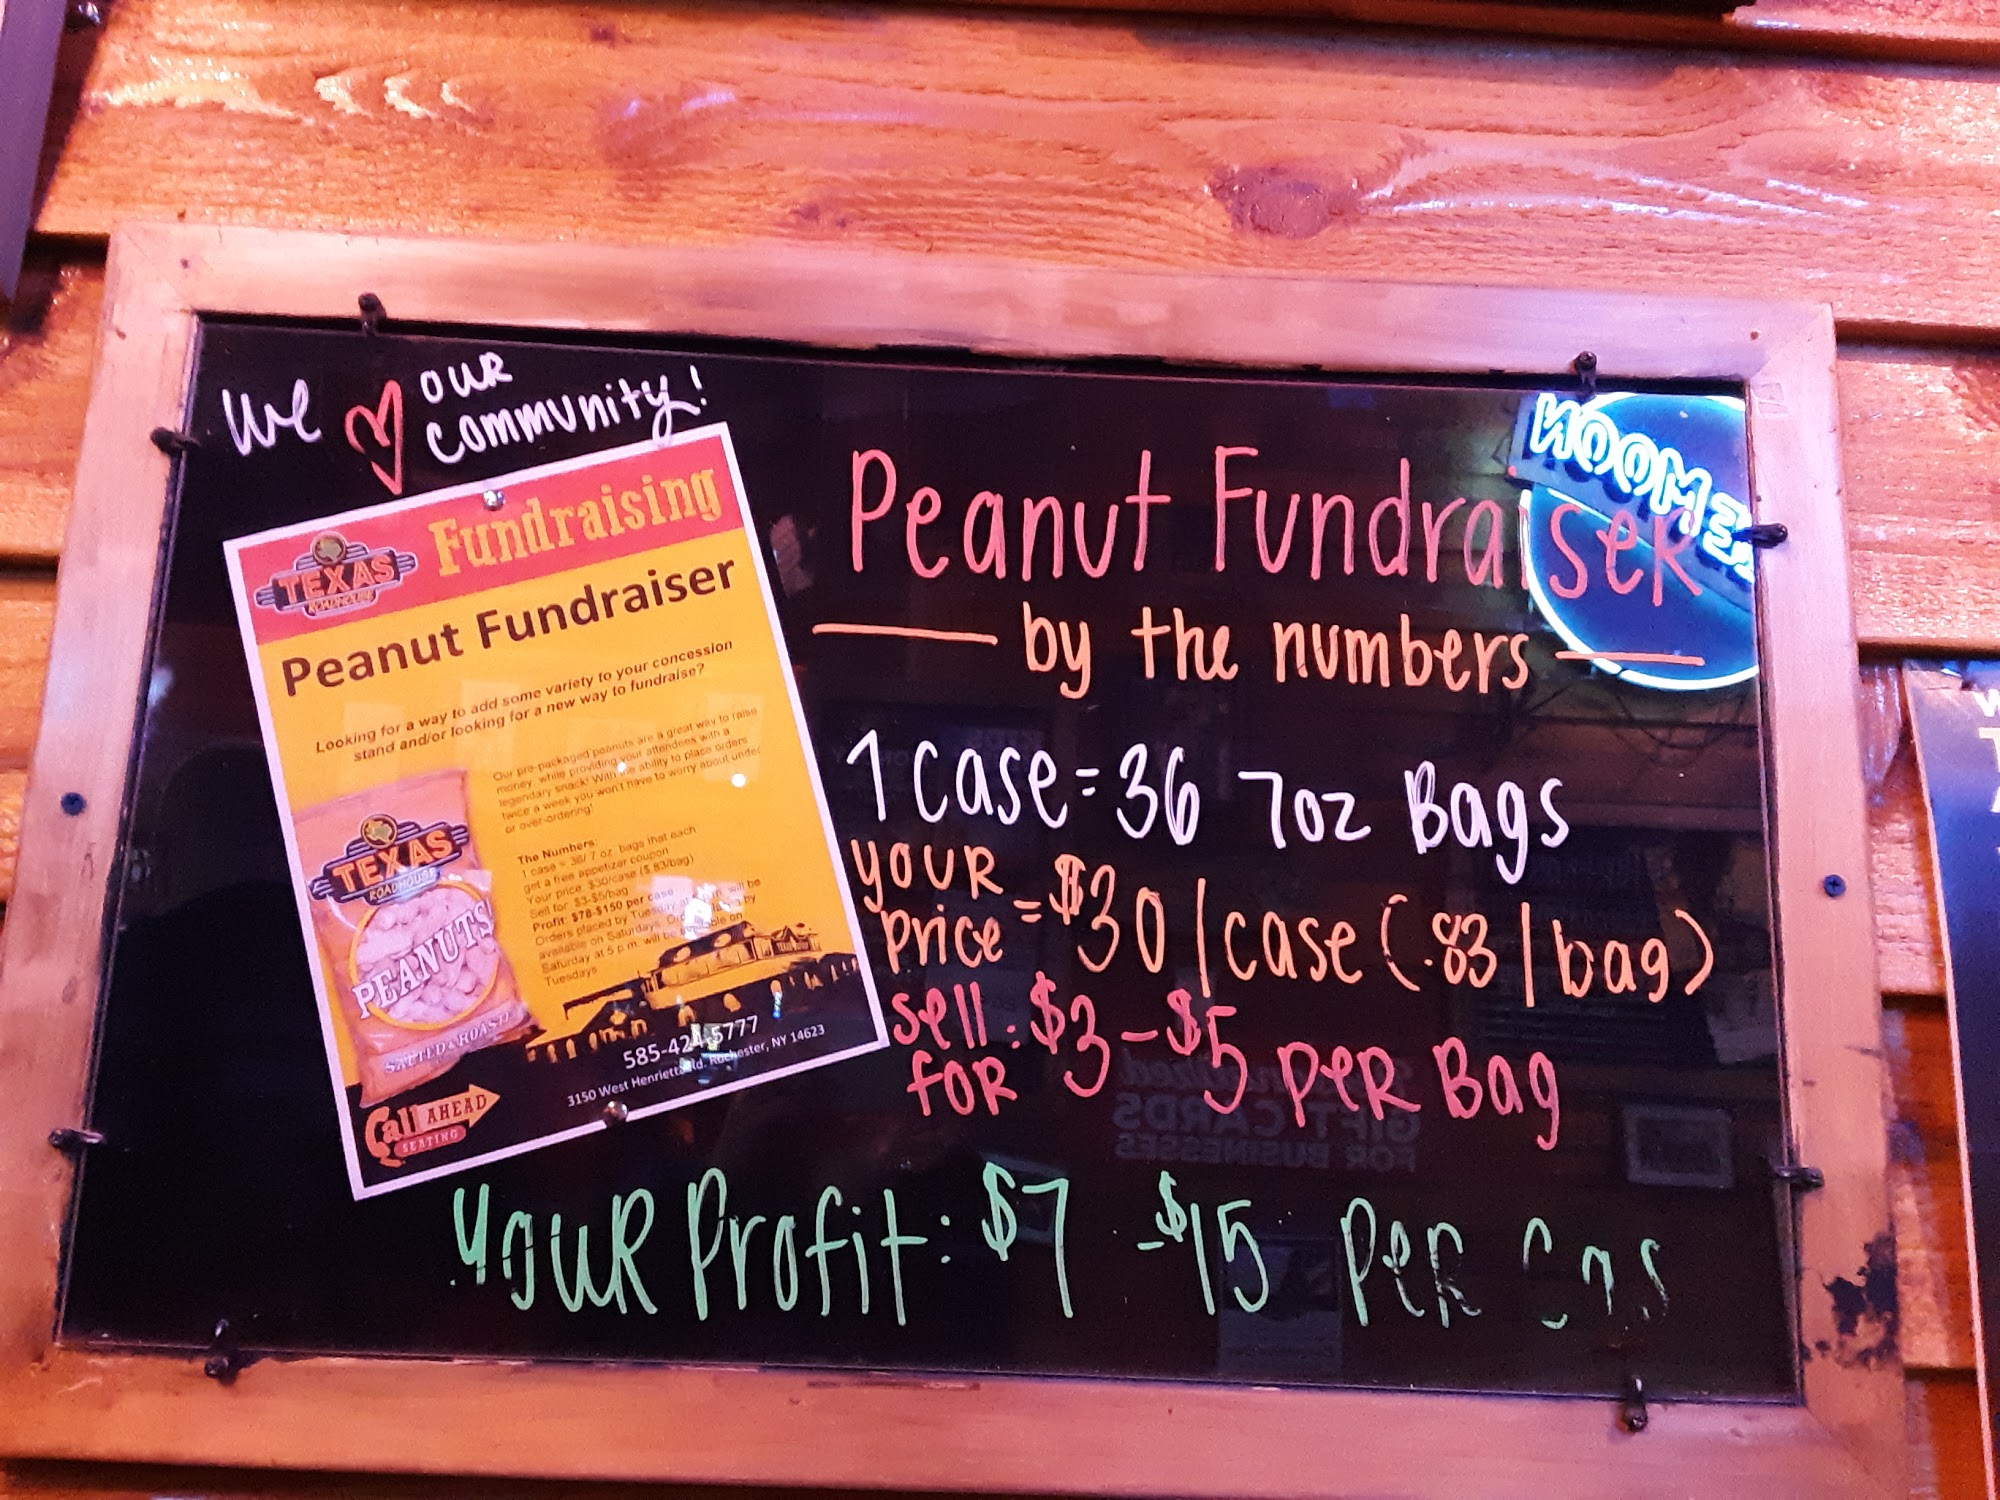 We ♥ our
community!
TEXAS
ROADHOUSE
Fundraising
Peanut Fundraiser
Looking for a way to add some variety to your concession
stand and/or looking for a new way to fundraise?
Our pre-packaged peanuts are a great way to raise
money, while providing your attendees with a
legendary snack! With the ability to place orders
twice a week you won't have to worry about under
or over-ordering!
The Numbers:
1 case = 36/ 7 oz. bags that each
get a free appetizer coupon
Your price: $30/case ($.83/bag)
Sell for: $3-$5/bag
Profit: $78-$150 per case
Orders placed by Tuesday at will be
available on Saturdays. by
Saturday at 5 p.m. will be available on
Tuesdays
TEXAS
ROADHOUSE
PEANUTS
SALTED & ROASTED
585-424-5777
3150 West Henrietta Rd. Rochester, NY 14623
Call AHEAD
SEATING
Peanut Fundraiser
by the numbers
1 case = 36 7oz Bags
your price = $30/case (.83/bag)
sell for: $3-$5 per Bag
your Profit: $7 -$15 Per
WOOMER
GIFT CARDS
FOR BUSINESSES